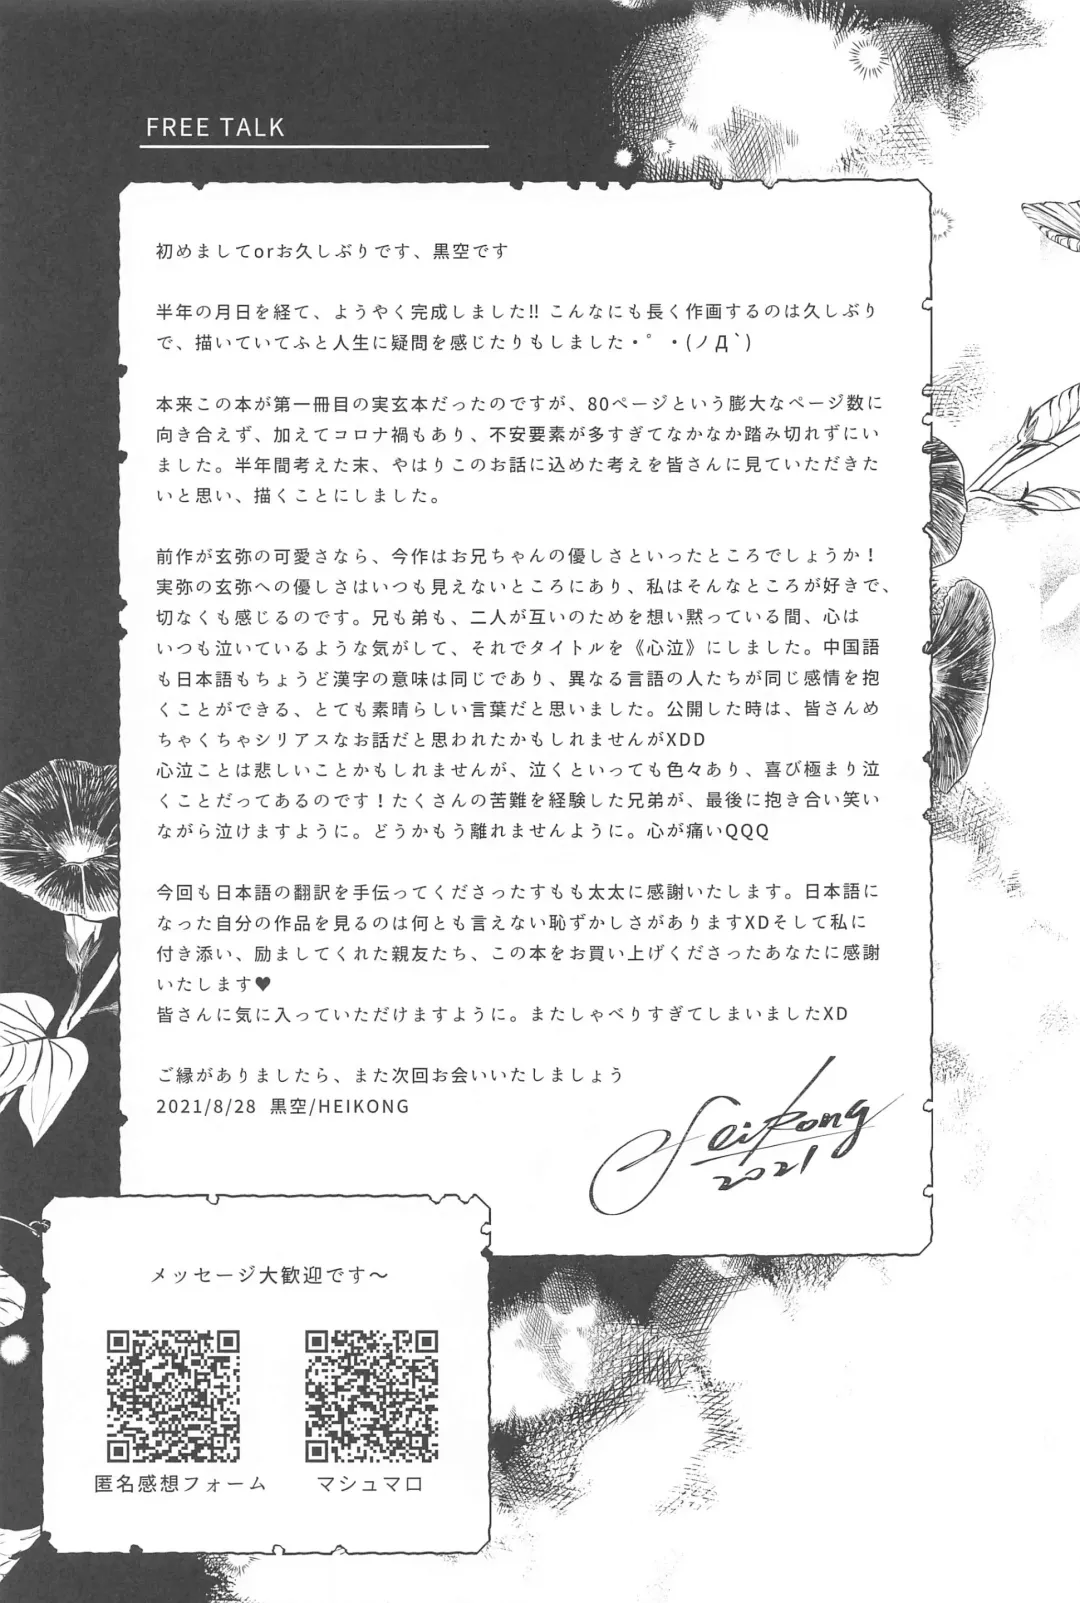 FREE TALK
初めましてorお久しぶりです、黒空です
半年の月日を経て、ようやく完成しました!! こんなにも長く作画するのは久しぶり
で、描いていてふと人生に疑問を感じたりもしました・゜・(ノД`)
本来この本が第一冊目の実玄本だったのですが、80ページという膨大なページ数に
向き合えず、加えてコロナ禍もあり、不安要素が多すぎてなかなか踏み切れずにい
ました。半年間考えた末、やはりこのお話に込めた考えを皆さんに見ていただきた
いと思い、描くことにしました。
前作が玄弥の可愛さなら、今作はお兄ちゃんの優しさといったところでしょうか！
実弥の玄弥への優しさはいつも見えないところにあり、私はそんなところが好きで、
切なくも感じるのです。兄も弟も、二人が互いのためを想い黙っている間、心は
いつも泣いているような気がして、それでタイトルを《心泣》にしました。中国語
も日本語もちょうど漢字の意味は同じであり、異なる言語の人たちが同じ感情を抱
くことができる、とても素晴らしい言葉だと思いました。公開した時は、皆さんめ
ちゃくちゃシリアスなお話だと思われたかもしれませんがXDD
心泣ことは悲しいことかもしれませんが、泣くといっても色々あり、喜び極まり泣
くことだってあるのです！たくさんの苦難を経験した兄弟が、最後に抱き合い笑い
ながら泣けますように。どうかもう離れませんように。心が痛いQQQ
今回も日本語の翻訳を手伝ってくださったすもも太太に感謝いたします。日本語に
なった自分の作品を見るのは何とも言えない恥ずかしさがありますXDそして私に
付き添い、励ましてくれた親友たち、この本をお買い上げくださったあなたに感謝
いたします♥
皆さんに気に入っていただけますように。またしゃべりすぎてしまいましたXD
ご縁がありましたら、また次回お会いいたしましょう
2021/8/28 黒空/HEIKONG
Heikong
2021
メッセージ大歓迎です〜
匿名感想フォーム
マシュマロ